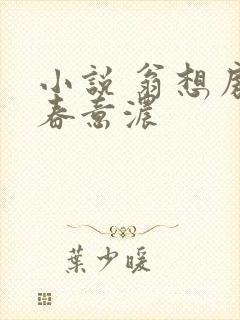 小説 翁想房
春意濃
葉少暖